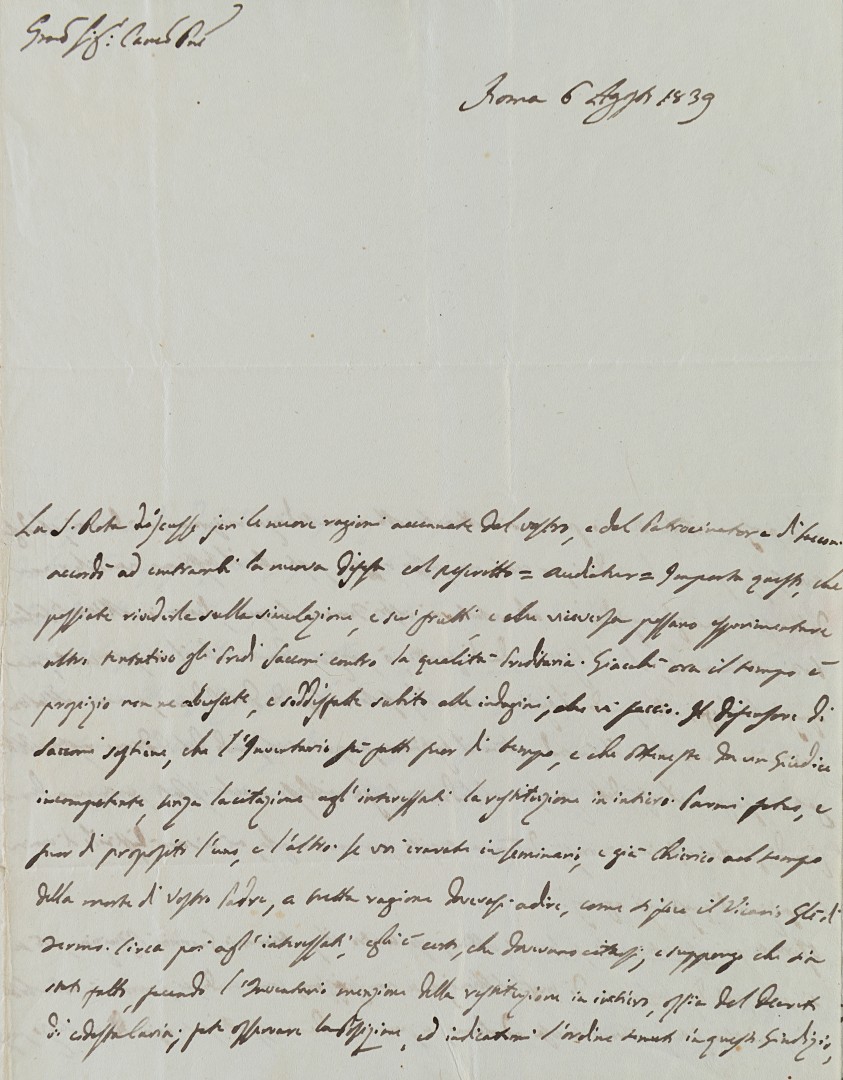 Sig.r
Roma 6 Agosto 1839
La S. Rota discusse jeri le nuove ragioni accennate dal vostro, e dal Patrocinatore di Sacconi
accordò ad entrambi la nuova difesa col rescritto = audiatur = Importa questo, che
possiate rivederla sulla simulazione, e sui frutti, e che viceversa possano esperimentare
altro tentativo gli Eredi Sacconi contro la qualità Ereditaria. Giacchè ora il tempo è
propizio non ne abusate, e soddisfatte subito alle indagini, che vi faccio. Il difensore di
Sacconi sostiene, che l'Inventario fu fatto fuor di tempo, e che otteneste da un Giudice
incompetente, senza la citazione agl'interessati la restituzione in intiero. Parmi falso, e
fuor di proposito l'uno, e l'altro. Se voi eravate in seminario, e già Chierico nel tempo
della morte di vostro Padre, a tutta ragione dovevasi adire, come si fece il Vicario Gle di
Fermo. Circa poi agl'interessati, egli è certo, che dovevano citarsi, e suppongo che sia
stato fatto, facendo l'Inventario menzione della restituzione in intiero, ossia del Decreto
di codesta Curia; fate osservare la Posizione, ed indicatemi l'ordine tenuto in questo Giudizio,